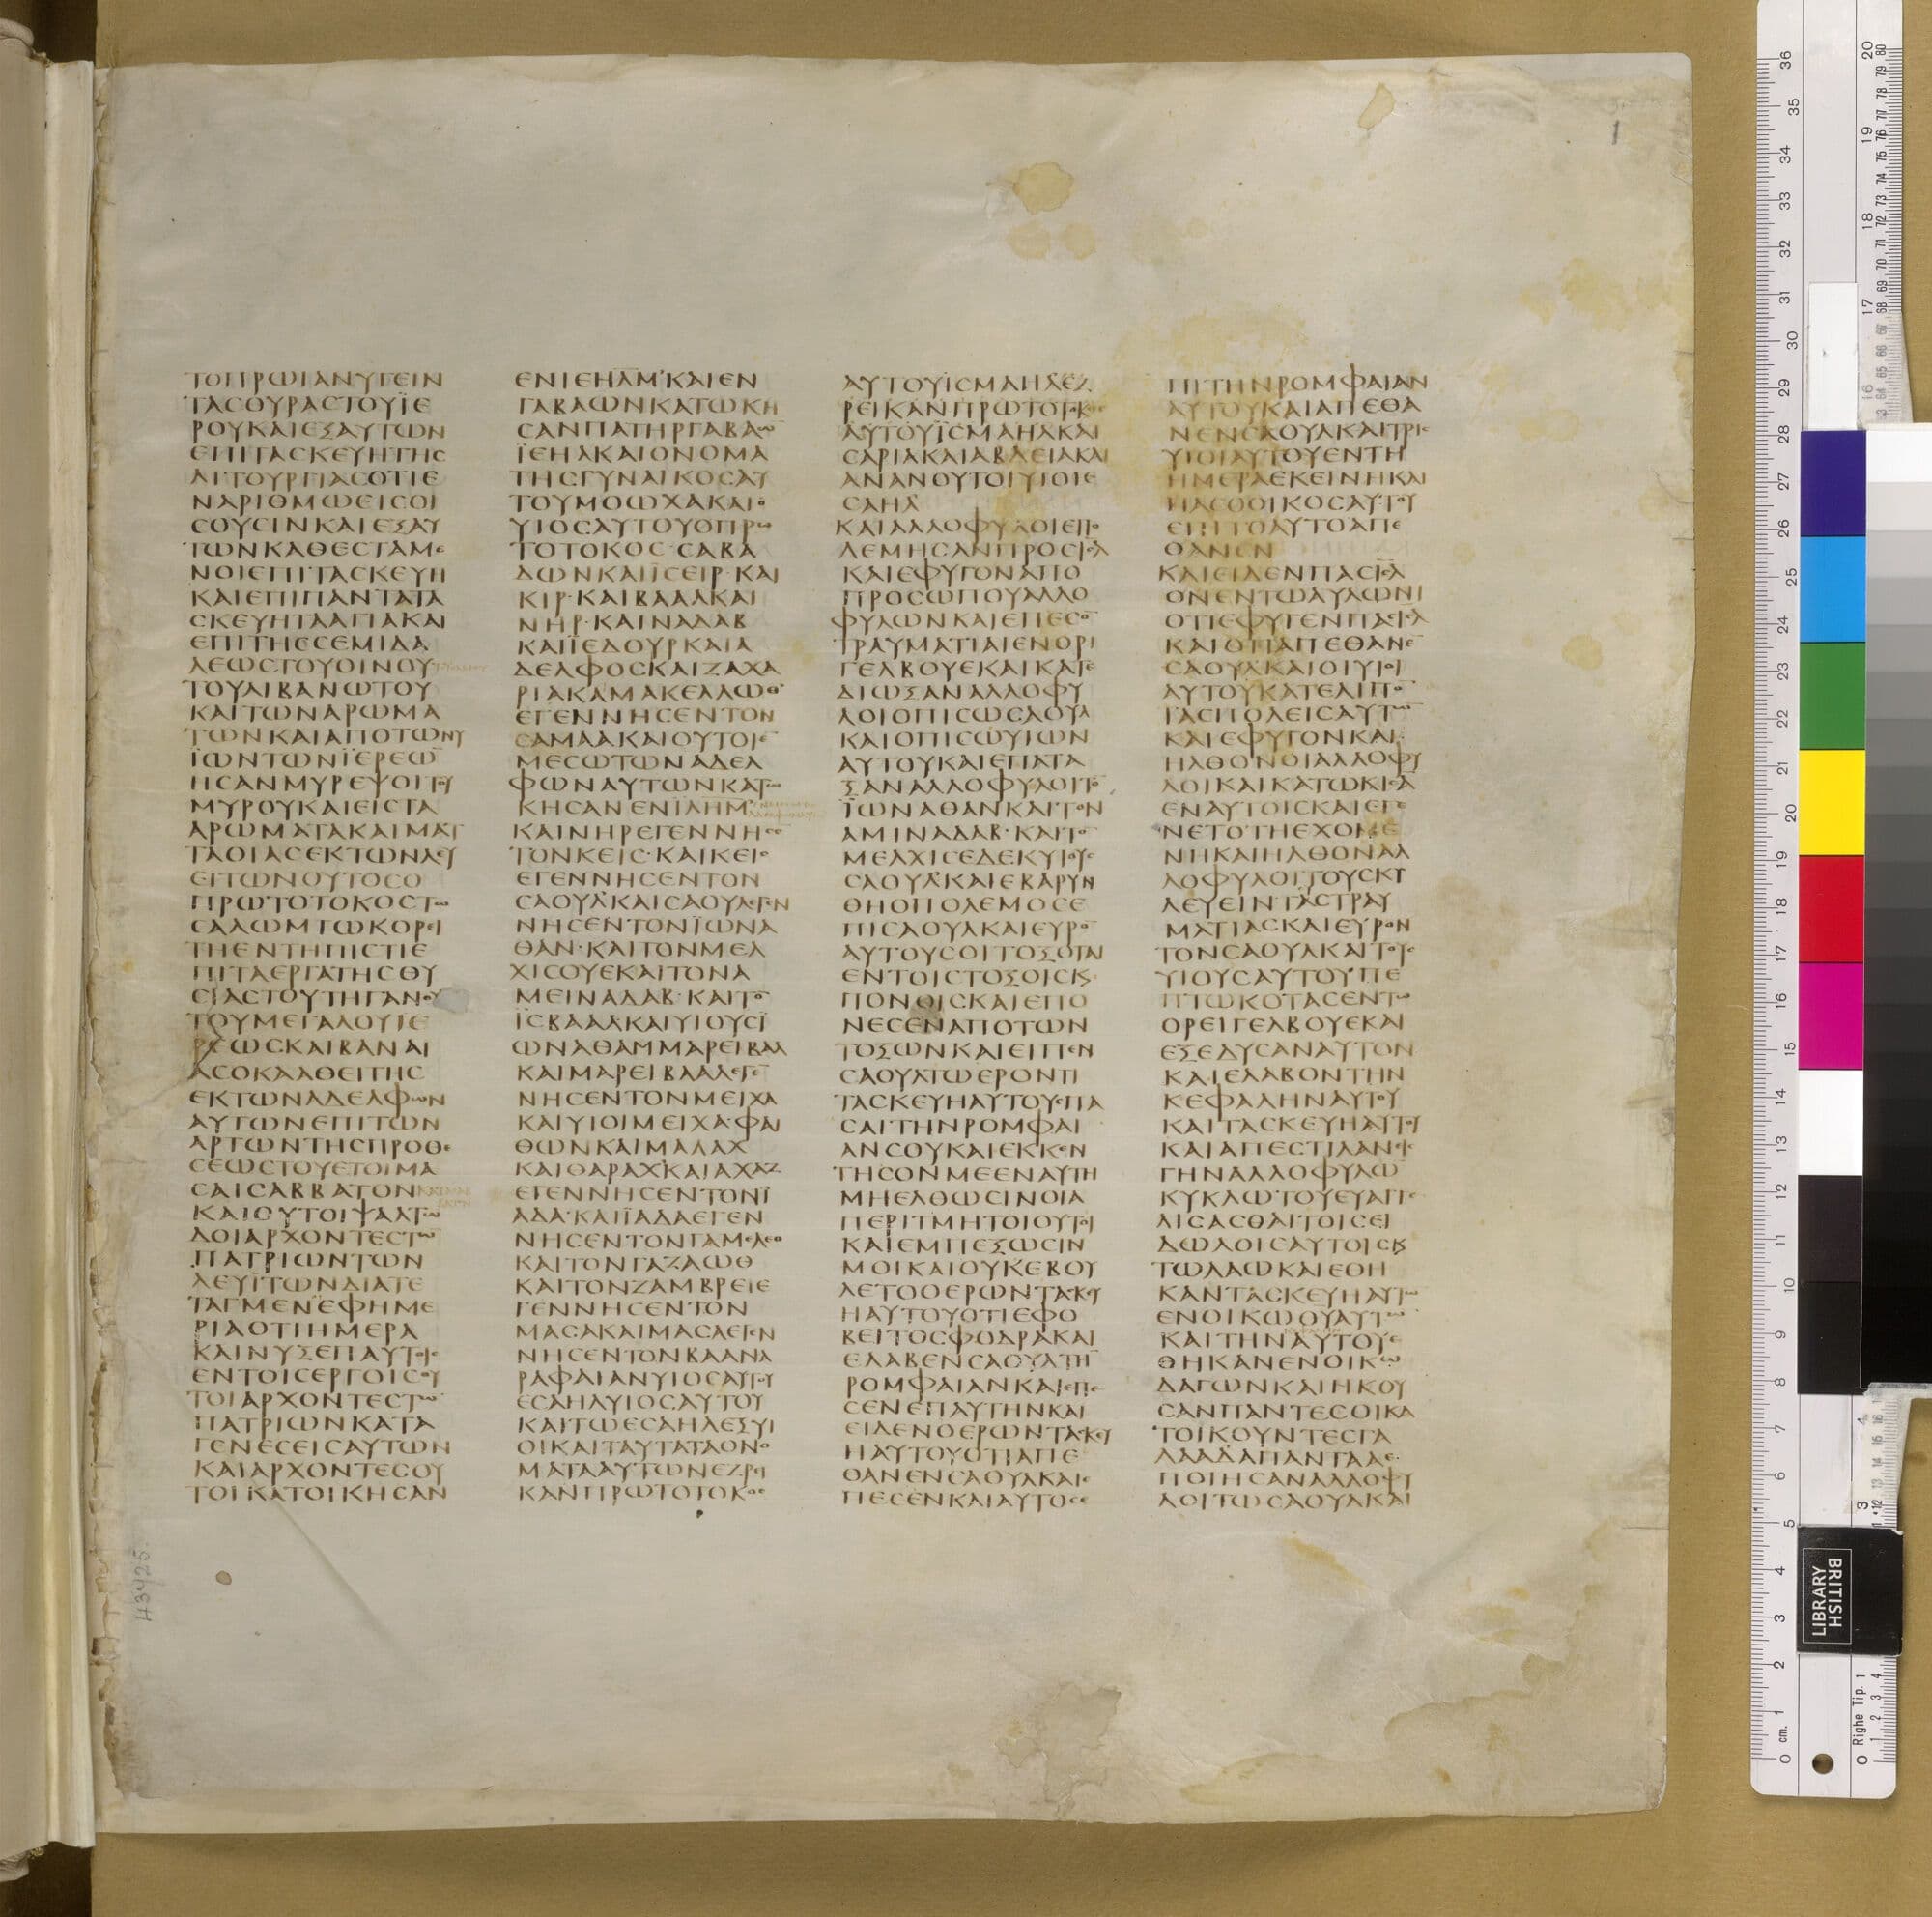 ΤΟΠΡΩΙΑΝΥΓΕΙΝ
ΤΑСΟΥΡΑСΤΟΥΪΕ
ΡΟΥΚΑΙΕΞΑΥΤΩΝ
ΕΠΙΤΑСΚΕΥΗΤΗС
ΛΙΤΟΥΡΓΙΑСΟΤΙΕ
ΝΑΡΙΘΜΩΕΙСΟΙ
СΟΥСΙΝΚΑΙΕΞΑΥ
ΤΩΝΚΑΘΕСΤΑΜΕ
ΝΟΙΕΠΙΤΑСΚΕΥΗ
ΚΑΙΕΠΙΠΑΝΤΑΤΑ
СΚΕΥΗΤΑΑΓΙΑΚΑΙ
ΕΠΙΤΗССΕΜΙΔΑ
ΛΕΩСΤΟΥΟΙΝΟΥ
ΤΟΥΛΙΒΑΝΩΤΟΥ
ΚΑΙΤΩΝΑΡΩΜΑ
ΤΩΝΚΑΙΑΠΟΤΩΝΥ
ΪΩΝΤΩΝΪΕΡΕΩ̅
ΗСΑΝΜΥΡΕΨΟΙΤΟΥ
ΜΥΡΟΥΚΑΙΕΙСΤΑ
ΑΡΩΜΑΤΑΚΑΙΜΑΤ
ΤΑΘΙΑСΕΚΤΩΝΛΕΥ
ΕΙΤΩΝΟΥΤΟСΟ
ΠΡΩΤΟΤΟΚΟСΤΩ
СΑΛΩΜΤΩΚΟΡΕΙ
ΤΗΕΝΤΗΠΙСΤΙΕ
ΠΙΤΑΕΡΓΑΤΗСΘΥ
СΙΑСΤΟΥΤΗΓΑΝΟΥ
ΤΟΥΜΕΓΑΛΟΥΙΕ
ΡΕΩСΚΑΙΒΑΝΑΙ
ΑСΟΚΑΑΘΕΙΤΗС
ΕΚΤΩΝΑΔΕΛΦΩΝ
ΑΥΤΩΝΕΠΙΤΩΝ
ΑΡΤΩΝΤΗСΠΡΟΘΕ
СΕΩСΤΟΥΕΤΟΙΜΑ
СΑΙСΑΒΒΑΤΟΝ
ΚΑΙΟΥΤΟΙΨΑΛΤΩ
ΔΟΙΑΡΧΟΝΤΕСΤΩ̅
ΠΑΤΡΙΩΝΤΩΝ
ΛΕΥΪΤΩΝΔΙΑΤΕ
ΤΑΓΜΕΝΕΦΗΜΕ
ΡΙΑΟΤΙΗΜΕΡΑ
ΚΑΙΝΥΞΕΠΑΥΤΟΙС
ΕΝΤΟΙСΕΡΓΟΙСΟΥ
ΤΟΙΑΡΧΟΝΤΕСΤΩ̅
ΠΑΤΡΙΩΝΚΑΤΑ
ΓΕΝΕСΕΙСΑΥΤΩΝ
ΚΑΙΑΡΧΟΝΤΕСΟΥ
ΤΟΙΚΑΤΟΙΚΗСΑΝ
ΕΝΙΕΗΛΜ̅ΚΑΙΕΝ
ΓΑΒΑΩΝΚΑΤΩΚΗ
СΑΝΠΑΤΗΡΓΑΒΑΩ̅
ΪΕΗΛΚΑΙΟΝΟΜΑ
ΤΗСΓΥΝΑΙΚΟСΑΥ
ΤΟΥΜΟΩΧΑΚΑΙΟ
ΥΙΟСΑΥΤΟΥΟΠΡΩ
ΤΟΤΟΚΟС·СΑΒΑ
ΔΩΝΚΑΙΪСΕΙΡ·ΚΑΙ
ΚΙΡ·ΚΑΙΒΑΑΛΚΑΙ
ΝΗΡ·ΚΑΙΝΑΔΑΒ
ΚΑΙΪΕΔΟΥΡΚΑΙΑ
ΔΕΛΦΟСΚΑΙΖΑΧΑ
ΡΙΑΚΑΜΑΚΕΛΛΩΘ
ΕΓΕΝΝΗСΕΝΤΟΝ
СΑΜΑΑΚΑΙΟΥΤΟΙΕ
ΜΕСΩΤΩΝΑΔΕΛ
ΦΩΝΑΥΤΩΝΚΑΤΩ
ΚΗСΑΝΕΝΪΛΗΜ̅
ΚΑΙΝΗΡΕΓΕΝΝΗСΕ
ΤΟΝΚΕΙС·ΚΑΙΚΕΙС
ΕΓΕΝΝΗСΕΝΤΟΝ
СΑΟΥΛ·ΚΑΙСΑΟΥΛΕΓΕΝ
ΝΗСΕΝΤΟΝΪΩΝΑ
ΘΑΝ·ΚΑΙΤΟΝΜΕΛ
ΧΙСΟΥΕΚΑΙΤΟΝΑ
ΜΕΙΝΑΔΑΒ·ΚΑΙΤΟ̅
ΪСΒΑΑΛΚΑΙΥΙΟΥСΪ
ΩΝΑΘΑΜΜΑΡΕΙΒΑΑ
ΚΑΙΜΑΡΕΙΒΑΑΛΕΓΕ̅
ΝΗСΕΝΤΟΝΜΕΙΧΑ
ΚΑΙΥΙΟΙΜΕΙΧΑ·ΦΑΙ
ΘΩΝΚΑΙΜΑΛΑΧ
ΚΑΙΘΑΡΑΧ·ΚΑΙΑΧΑΖ
ΕΓΕΝΝΗСΕΝΤΟΝΪ
ΑΔΑ·ΚΑΙΪΑΔΑΕΓΕΝ
ΝΗСΕΝΤΟΝΓΑΜΕΛΕΘ
ΚΑΙΤΟΝΓΑΖΑΩΘ
ΚΑΙΤΟΝΖΑΜΒΡΕΙΕ
ΓΕΝΝΗСΕΝΤΟΝ
ΜΑСΑΚΑΙΜΑСΑΕΓΕΝ
ΝΗСΕΝΤΟΝΒΑΑΝΑ
ΡΑΦΑΙΑΝΥΙΟСΑΥΤΟΥ
ΕСΑΗΛΥΙΟСΑΥΤΟΥ
ΚΑΙΤΩΕСΑΗΛΕΞΥΙ
ΟΙΚΑΙΤΑΥΤΑΤΑΟΝΟ
ΜΑΤΑΑΥΤΩΝΕΖΡΕΙ
ΚΑΝΠΡΩΤΟΤΟΚΟС
ΑΥΤΟΥΪСΜΑΗΛΕΖ
ΡΕΙΚΑΝΠΡΩΤΟΤΟΚΟС
ΑΥΤΟΥΪСΜΑΗΛΚΑΙ
СΑΡΙΑΚΑΙΑΒΔΕΙΑΚΑΙ
ΑΝΑΝΟΥΤΟΙΥΙΟΙΕ
СΑΗΛ
ΚΑΙΑΛΛΟΦΥΛΟΙΕΠΟ
ΛΕΜΗСΑΝΠΡΟСΙΗΛ
ΚΑΙΕΦΥΓΟΝΑΠΟ
ΠΡΟСΩΠΟΥΑΛΛΟ
ΦΥΛΩΝΚΑΙΕΠΕСΟ̅
ΤΡΑΥΜΑΤΙΑΙΕΝΟΡΙ
ΓΕΛΒΟΥΕΚΑΙΚΑΤΕ
ΔΙΩΞΑΝΑΛΛΟΦΥ
ΛΟΙΟΠΙСΩСΑΟΥΛ
ΚΑΙΟΠΙСΩΥΙΩΝ
ΑΥΤΟΥΚΑΙΕΠΑΤΑ
ΞΑΝΑΛΛΟΦΥΛΟΙΤΟ̅
ΪΩΝΑΘΑΝΚΑΙΤΟΝ
ΑΜΙΝΑΔΑΒ·ΚΑΙΤΟ̅
ΜΕΛΧΙСΕΔΕΚΥΙΟΥС
СΑΟΥΛΚΑΙΕΒΑΡΥΝ
ΘΗΟΠΟΛΕΜΟСΕ
ΠΙСΑΟΥΛΚΑΙΕΥΡΟ̅
ΑΥΤΟΥСΟΙΤΟΞΟΤΑΙ
ΕΝΤΟΙСΤΟΞΟΙСΚΑΙ
ΠΟΝΟΙСΚΑΙΕΠΟ
ΝΕСΕΝΑΠΟΤΩΝ
ΤΟΞΩΝΚΑΙΕΙΠΕΝ
СΑΟΥΛΤΩΕΡΟΝΤΙ
ΤΑСΚΕΥΗΑΥΤΟΥСΠΑ
СΑΙΤΗΝΡΟΜΦΑΙ
ΑΝСΟΥΚΑΙΕΚΚΕΝ
ΤΗСΟΝΜΕΕΝΑΥΤΗ
ΜΗΕΛΘΩСΙΝΟΙΑ
ΠΕΡΙΤΜΗΤΟΙΟΥΤΟΙ
ΚΑΙΕΜΠΕΞΩСΙΝ
ΜΟΙΚΑΙΟΥΚΕΒΟΥ
ΛΕΤΟΟΕΡΩΝΤΑСΚΕΥ
ΗΑΥΤΟΥΟΤΙΕΦΟ
ΒΕΙΤΟСΦΟΔΡΑΚΑΙ
ΕΛΑΒΕΝСΑΟΥΛΤΗ̅
ΡΟΜΦΑΙΑΝΚΑΙΕΠΕ
СΕΝΕΠΑΥΤΗΝΚΑΙ
ΕΙΔΕΝΟΕΡΩΝΤΑСΚΕΥ
ΗΑΥΤΟΥΟΤΙΑΠΕ
ΘΑΝΕΝСΑΟΥΛΚΑΙΕ
ΠΕСΕΝΚΑΙΑΥΤΟСΕ
ΠΙΤΗΝΡΟΜΦΑΙΑΝ
ΑΥΤΟΥΚΑΙΑΠΕΘΑ
ΝΕΝСΑΟΥΛΚΑΙΤΡΙС
ΥΙΟΙΑΥΤΟΥΕΝΤΗ
ΗΜΕΡΑΕΚΕΙΝΗΚΑΙ
ΠΑСΟΟΙΚΟСΑΥΤΟΥ
ΕΠΙΤΟΑΥΤΟΑΠΕ
ΘΑΝΕΝ
ΚΑΙΕΙΔΕΝΠΑСΙΗΛ
ΟΝΕΝΤΩΑΥΛΩΝΙ
ΟΤΙΕΦΥΓΕΝΠΑСΙΗΛ
ΚΑΙΟΤΙΑΠΕΘΑΝΕ
СΑΟΥΛΚΑΙΟΙΥΙΟΙ
ΑΥΤΟΥΚΑΤΕΛΙΠΟ̅
ΤΑСΠΟΛΕΙСΑΥΤΩ̅
ΚΑΙΕΦΥΓΟΝΚΑΙ
ΗΛΘΟΝΟΙΑΛΛΟΦΥ
ΛΟΙΚΑΙΚΑΤΩΚΗСΑ
ΕΝΑΥΤΟΙСΚΑΙΕΓΕ
ΝΕΤΟΤΗΕΧΟΜΕ
ΝΗΚΑΙΗΛΘΟΝΑΛ
ΛΟΦΥΛΟΙΤΟΥСΚΥ
ΛΕΥΕΙΝΤΑСΤΡΑΥ
ΜΑΤΙΑСΚΑΙΕΥΡΟΝ
ΤΟΝСΑΟΥΛΚΑΙΤΟΥС
ΥΙΟΥСΑΥΤΟΥΠΕ
ΠΤΩΚΟΤΑСΕΝΤΩ
ΟΡΕΙΓΕΛΒΟΥΕΚΑΙ
ΕΞΕΔΥСΑΝΑΥΤΟΝ
ΚΑΙΕΛΑΒΟΝΤΗΝ
ΚΕΦΑΛΗΝΑΥΤΟΥ
ΚΑΙΤΑСΚΕΥΗΑΥΤΟΥ
ΚΑΙΑΠΕСΤΙΛΑΝΕΙС
ΓΗΝΑΛΛΟΦΥΛΩ̅
ΚΥΚΛΩΤΟΥΕΥΑΓΓΕ
ΛΙСΑСΘΑΙΤΟΙСΕΙ
ΔΩΛΟΙСΑΥΤΟΙСΚΑΙ
ΤΩΛΑΩΚΑΙΕΘΗ
ΚΑΝΤΑСΚΕΥΗΑΥΤΩ̅
ΕΝΟΙΚΩΘΥΑΥΤΩ̅
ΚΑΙΤΗΝΑΥΤΟΥΕ
ΘΗΚΑΝΕΝΟΙΚΩ
ΔΑΓΩΝΚΑΙΗΚΟΥ
СΑΝΠΑΝΤΕСΟΙΚΑ
ΤΟΙΚΟΥΝΤΕСΓΑ
ΛΑΑΔΑΠΑΝΤΑΑΕ
ΠΟΙΗСΑΝΑΛΛΟΦΥ
ΛΟΙΤΩСΑΟΥΛΚΑΙ
1
43725
BRITISH
LIBRARY
cm.
Righe Tip.